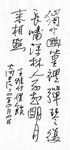 獨坐幽篁裡彈琴復
長嘯深林人不知明月
來相照
王維竹里館